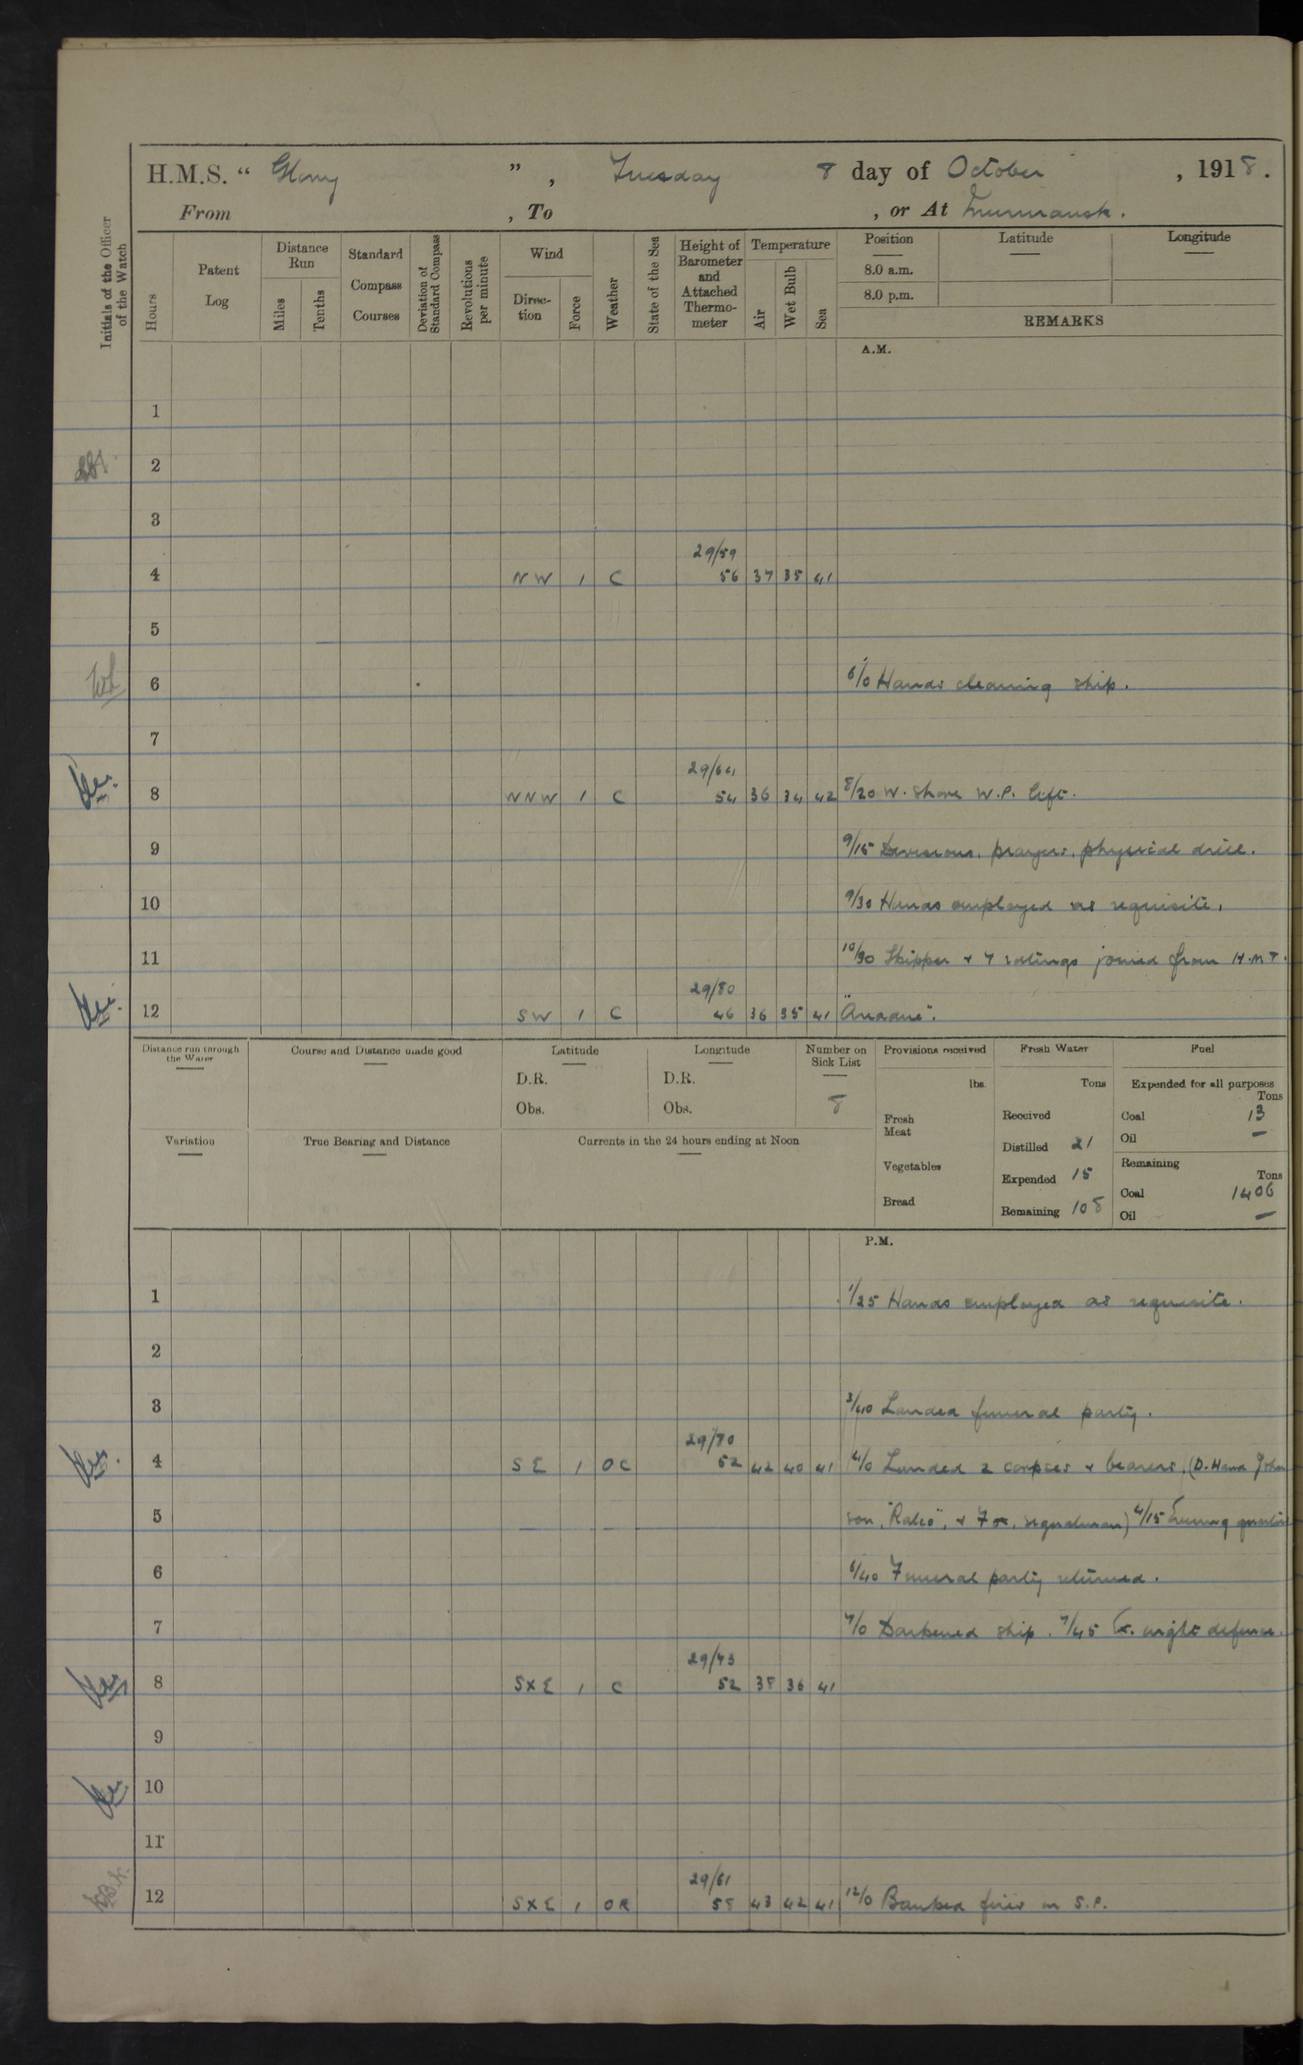 H.M.S. “ Glory ” , Tuesday 8 day of October , 1918.
From , To , or At Murmansk.
Initials of the Officer of the Watch
Hours
Patent Log
Distance Run
Miles
Tenths
Standard Compass Courses
Deviation of Standard Compass
Revolutions per minute
Wind
Direc-tion
Force
Weather
State of the Sea
Height of Barometer and Attached Thermo-meter
Temperature
Air
Wet Bulb
Sea
Position Latitude Longitude
8.0 a.m.
8.0 p.m.
REMARKS
A.M.
1
2
3
29/59
4 NW 1 C 56 37 35 41
5
6 6/0 Hands cleaning ship.
7
29/64
8 NNW 1 C 54 36 34 42 8/20 W. shore W.P. left.
9 9/15 Divisions, prayers, physical drill.
10 9/30 Hands employed as requisite.
11 10/30 Skipper & 7 ratings joined from H.M.T.
29/80
12 SW 1 C 46 36 35 41 "Ariadne".
Distance run through the Water
Course and Distance made good
Latitude
D.R.
Obs.
Longitude
D.R.
Obs.
Number on Sick List
8
Provisions received
lbs.
Fresh Meat
Vegetables
Bread
Fresh Water
Tons
Received
Distilled 21
Expended 15
Remaining 108
Fuel
Expended for all purposes
Tons
Coal 13
Oil —
Remaining
Tons
Coal 1406
Oil —
Variation
True Bearing and Distance
Currents in the 24 hours ending at Noon
P.M.
1 1/25 Hands employed as requisite.
2
3 3/40 Landed funeral party.
29/80
4 SE 1 OC 52 42 40 41 4/0 Landed 2 corpses & bearers. (D. Hand John
5 son, "Ralco", & Fox, signalman) 4/15 Evening quarters
6 6/40 Funeral party returned.
7 7/0 Darkened ship. 7/45 Ex. night defence.
29/73
8 SXE 1 C 52 38 36 41
9
10
11
29/61
12 SXE 1 OR 58 43 42 41 12/0 Banked fires in S.P.